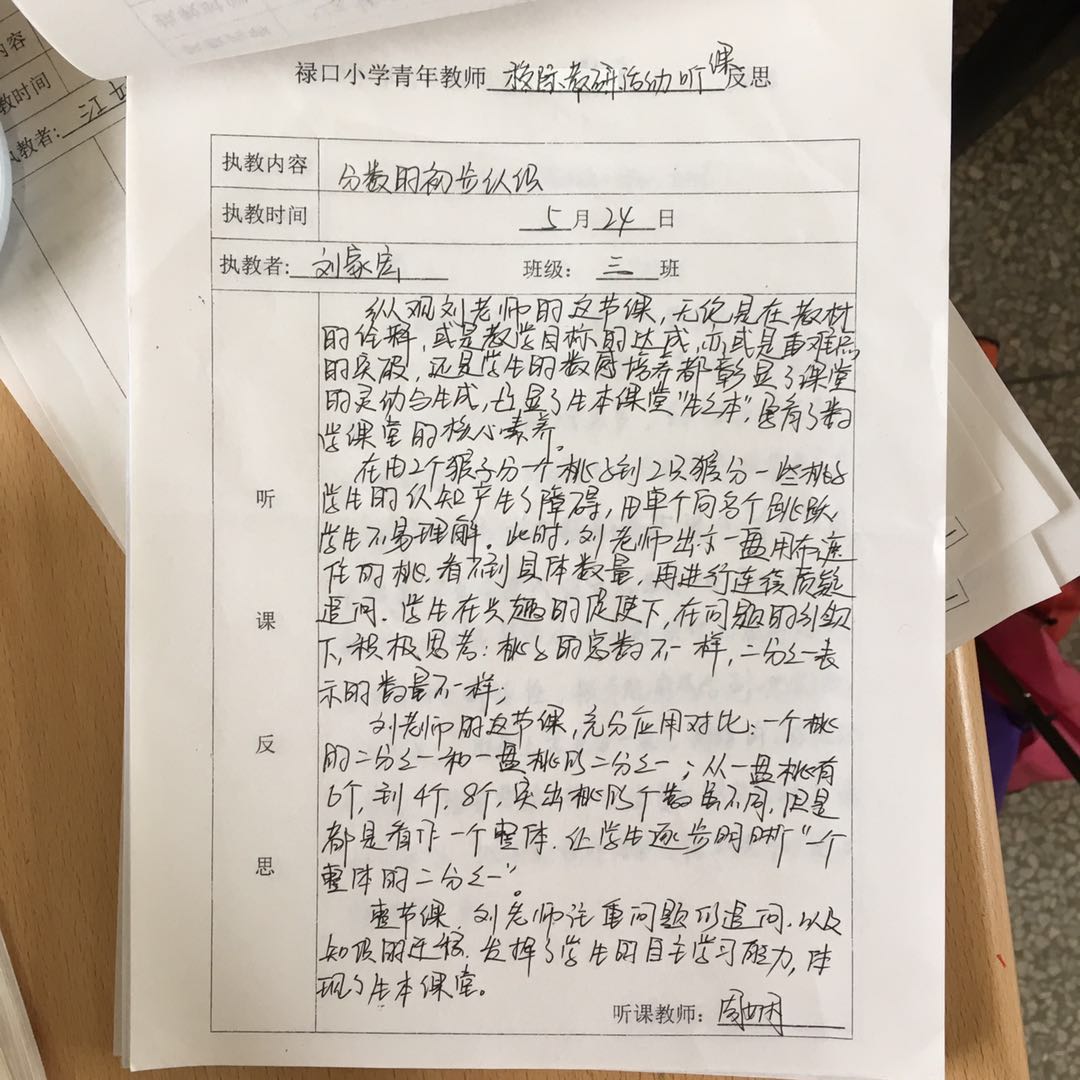 内容
教时间
执教者: 江
禄口小学青年教师 校际教研活动听课反思
执教内容 分数的初步认识
执教时间 5月24日
执教者: 刘家宏 班级: 三 班
听课反思
纵观刘老师的这节课,无论是在教材
的诠释,或是教学目标的达成,亦或是重难点
的突破,还是学生的数感培养都彰显了课堂
的灵动与生成,凸显了生本课堂“生之本”,更有了数
学课堂的核心素养。
在由2个猴子分一个桃子到2只猴分一些桃子
学生的认知产生了障碍,由单个向多个跳跃,
学生不易理解。此时,刘老师出示一盘用布遮
住的桃,看不到具体数量,再进行连续质疑
追问.学生在兴趣的促使下,在问题的引领
下,积极思考:桃子的总数不一样,二分之一表
示的数量不一样;
刘老师的这节课,充分应用对比:一个桃
的二分之一和一盘桃的二分之一;从一盘桃有
6个,到4个,8个,突出桃的个数虽不同,但是
都是看作一个整体.让学生逐步明晰“一个
整体的二分之一”。
整节课,刘老师注重问题的追问,以及
知识的迁移.发挥了学生的自主学习能力,体
现了生本课堂。
听课教师: 周